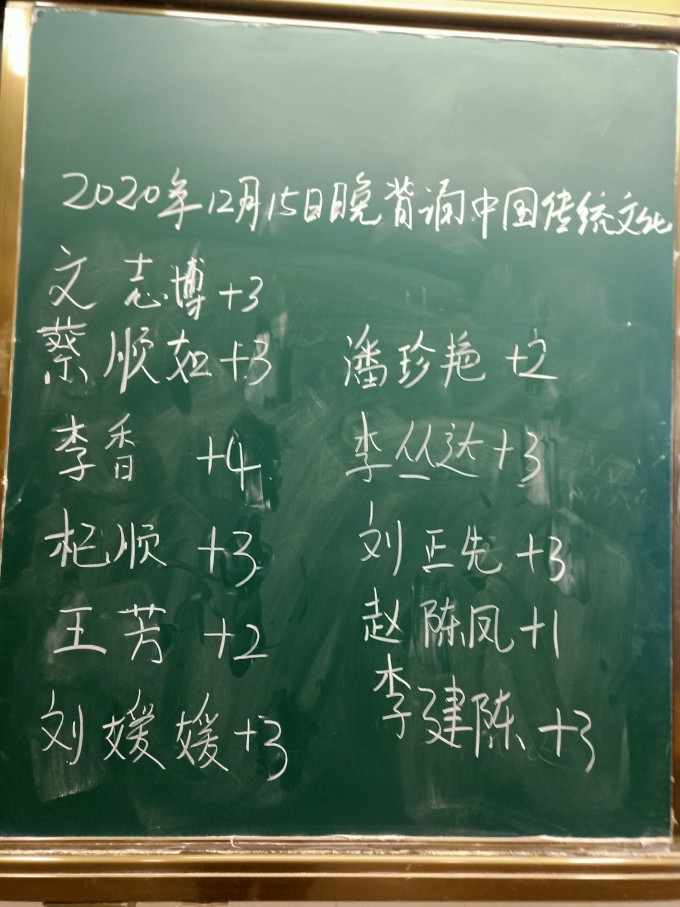 2020年12月15日晚背诵中国传统文化
文志博+3
蔡顺如+3 潘珍艳+2
李香 +4 李丛达+3
杞顺 +3 刘正先+3
王芳 +2 赵陈凤+1
刘媛媛+3 李建陈+3